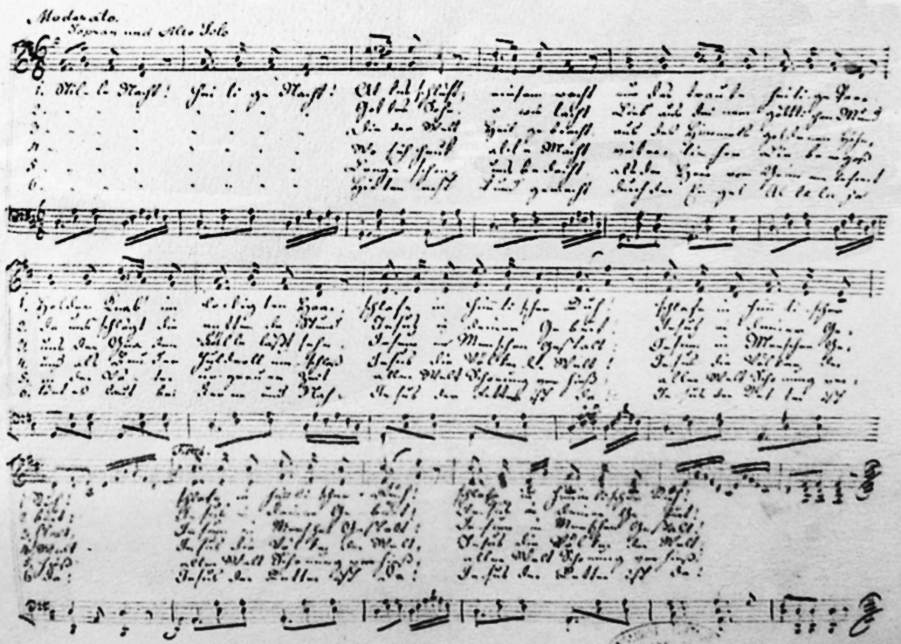 Moderato.
Sopran und Alto Solo
1. Stille Nacht! Heilige Nacht! Alles schläft; einsam wacht nur das traute heilige Paar.
2. Gottes Sohn! o wie lacht Lieb' aus deinem göttlichen Mund
3. Die der Welt Heil gebracht, aus des Himmels goldenen Höhn,
4. Wo sich heut alle Macht väterlicher Liebe ergoß
5. Lange schon uns bedacht, als der Herr vom Grimme befreit
6. Hirten erst kund gemacht durch der Engel Alleluja
1. Holder Knab' im lockigten Haar, schlafe in himmlischer Ruh! schlafe in himmlischer
2. Da uns schlägt die rettende Stund. Jesus! in deiner Geburt! Jesus! in deiner Ge-
3. uns der Gnaden Fülle läßt sehn, Jesum in Menschengestalt! Jesum in Menschen Ge-
4. und als Bruder huldvoll umschloß Jesus die Völker der Welt! Jesus die Völker der
5. in der Väter urgrauer Zeit aller Welt Schonung verhieß! aller Welt Schonung ver-
6. Tönt es laut bei Ferne und Nah: Jesus der Retter ist da! Jesus der Retter ist
1. Ruh! schlafe in himmlischer Ruh! schlafe in himmlischer Ruh!
2. burt! Jesus! in deiner Geburt! Jesus! in deiner Geburt!
3. stalt! Jesum in Menschen Gestalt! Jesum in Menschen Gestalt!
4. Welt Jesus die Völker der Welt! Jesus die Völker der Welt!
5. hieß! aller Welt Schonung verhieß! aller Welt Schonung verhieß!
6. da! Jesus der Retter ist da! Jesus der Retter ist da!